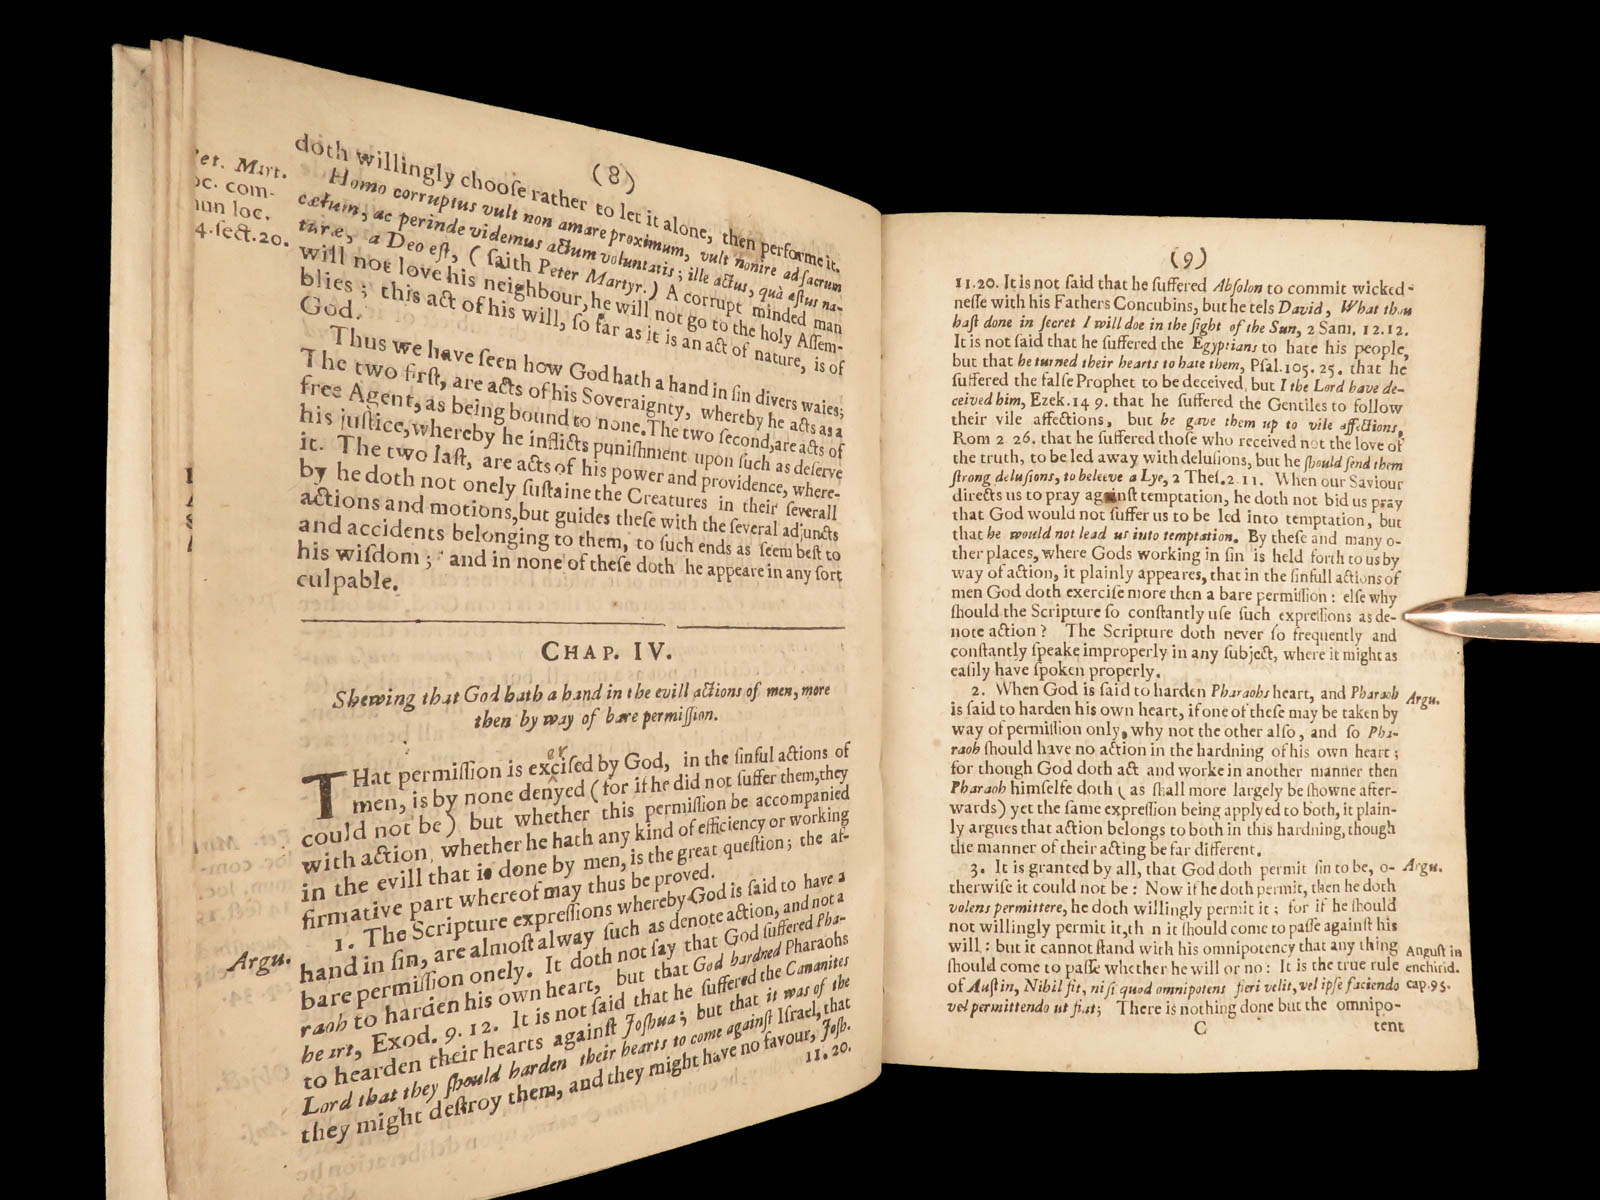 (8)
doth willingly chooſe rather to let it alone, then performe it.
Homo corruptus vult non amare proximum, vult non ire ad ſacrum
cætum, ac perinde videmus actum voluntatis; ille actus, quà actus na-
turæ, a Deo eſt, (ſaith Peter Martyr.) A corrupt minded man
will not love his neighbour, he will not go to the holy Aſſem-
blies; this act of his will, ſo far as it is an act of nature, is of
God.
et. Mart.
oc. com-
un loc.
4. ſect. 20.
Thus we have ſeen how God hath a hand in ſin divers waies;
The two firſt, are acts of his Soveraignty, whereby he acts as a
free Agent, as being bound to none. The two ſecond, are acts of
his juſtice, whereby he inflicts puniſhment upon ſuch as deſerve
it. The two laſt, are acts of his power and providence, where-
by he doth not onely ſuſtaine the Creatures in their ſeverall
actions and motions, but guides theſe with the ſeverall adjuncts
and accidents belonging to them, to ſuch ends as ſeem beſt to
his wiſdom; and in none of theſe doth he appeare in any ſort
culpable.
CHAP. IV.
Shewing that God hath a hand in the evill actions of men, more
then by way of bare permiſſion.
er
THat permiſſion is exciſed by God, in the ſinful actions of
men, is by none denyed (for if he did not ſuffer them, they
could not be) but whether this permiſſion be accompanied
with action, whether he hath any kind of efficiency or working
in the evill that is done by men, is the great queſtion; the af-
firmative part whereof may thus be proved.
Argu.
1. The Scripture expreſſions whereby God is ſaid to have a
hand in ſin, are almoſt alway ſuch as denote action, and not a
bare permiſſion onely. It doth not ſay that God ſuffered Pha-
raoh to harden his own heart, but that God hardned Pharaohs
heart, Exod. 9. 12. It is not ſaid that he ſuffered the Cananites
to hearden their hearts againſt Joſhua; but that it was of the
Lord that they ſhould harden their hearts to come againſt Iſrael, that
they might deſtroy them, and they might have no favour, Joſh.
11. 20.
(9)
11.20. It is not ſaid that he ſuffered Abſolon to commit wicked-
neſſe with his Fathers Concubins, but he tels David, What thou
haſt done in ſecret I will doe in the ſight of the Sun, 2 Sam. 12.12.
It is not ſaid that he ſuffered the Egyptians to hate his people,
but that he turned their hearts to hate them, Pſal. 105. 25. that he
ſuffered the falſe Prophet to be deceived, but I the Lord have de-
ceived him, Ezek. 14 9. that he ſuffered the Gentiles to follow
their vile affections, but he gave them up to vile affections,
Rom 2 26. that he ſuffered thoſe who received not the love of
the truth, to be led away with deluſions, but he ſhould ſend them
ſtrong deluſions, to beleeve a Lye, 2 Theſ. 2 11. When our Saviour
directs us to pray againſt temptation, he doth not bid us pray
that God would not ſuffer us to be led into temptation, but
that he would not lead us into temptation. By theſe and many o-
ther places, where Gods working in ſin is held forth to us by
way of action, it plainly appeares, that in the ſinfull actions of
men God doth exerciſe more then a bare permiſſion: elſe why
ſhould the Scripture ſo conſtantly uſe ſuch expreſſions as de-
note action? The Scripture doth never ſo frequently and
conſtantly ſpeake improperly in any ſubject, where it might as
eaſily have ſpoken properly.
2. When God is ſaid to harden Pharaohs heart, and Pharaoh
is ſaid to harden his own heart, if one of theſe may be taken by
way of permiſſion only, why not the other alſo, and ſo Pha-
raoh ſhould have no action in the hardning of his own heart;
for though God doth act and worke in another manner then
Pharaoh himſelfe doth (as ſhall more largely be ſhowne after-
wards) yet the ſame expreſſion being applyed to both, it plain-
ly argues that action belongs to both in this hardning, though
the manner of their acting be far different.
Argu.
3. It is granted by all, that God doth permit ſin to be, o-
therwiſe it could not be: Now if he doth permit, then he doth
volens permittere, he doth willingly permit it; for if he ſhould
not willingly permit it, th n it ſhould come to paſſe againſt his
will: but it cannot ſtand with his omnipotency that any thing
ſhould come to paſſe whether he will or no: It is the true rule
of Auſtin, Nihil fit, niſi quod omnipotens fieri velit, vel ipſe faciendo
vel permittendo ut fiat; There is nothing done but the omnipo-
Argu.
Auguſt in
enchirid.
cap. 95.
C
tent